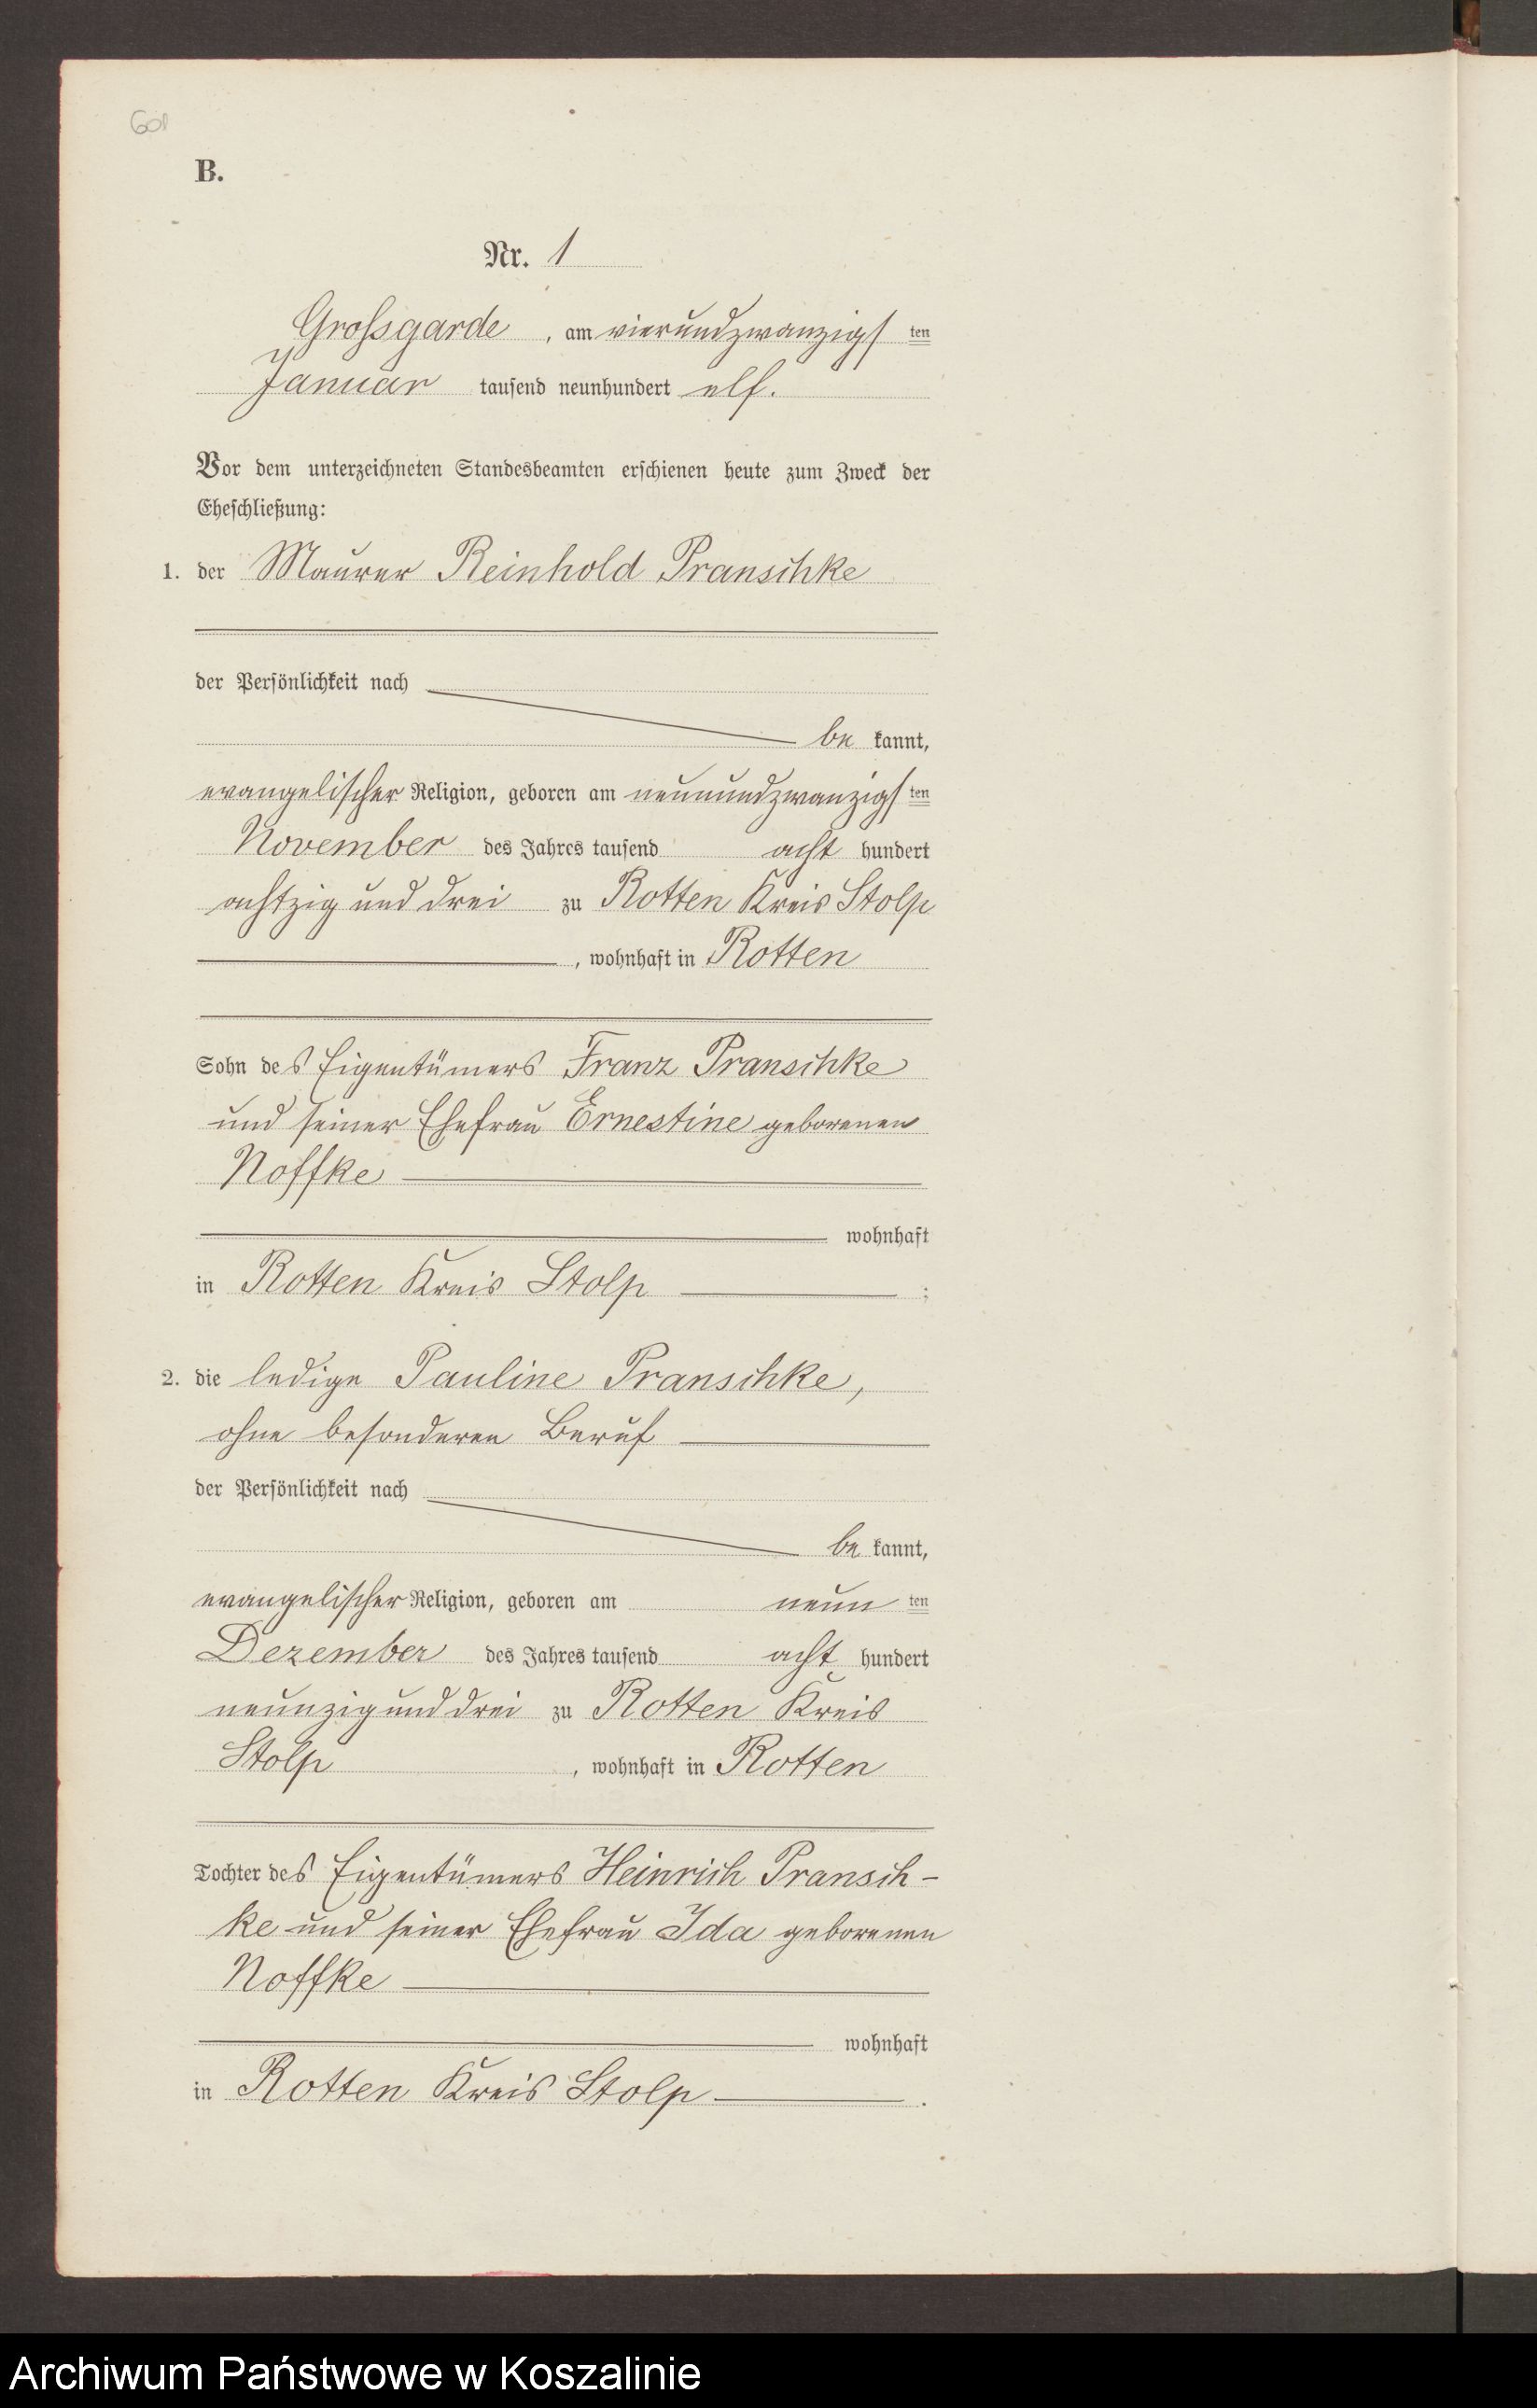 601
B.
Nr. 1
Grossgarde, am vierundzwanzigsten
Januar tausend neunhundert elf.
Vor dem unterzeichneten Standesbeamten erschienen heute zum Zweck der
Eheschließung:
1. der Maurer Reinhold Pranschke
der Persönlichkeit nach
bekannt,
evangelischer Religion, geboren am neunundzwanzigsten
November des Jahres tausend acht hundert
achtzig und drei zu Rotten Kreis Stolp
, wohnhaft in Rotten
Sohn des Eigentümers Franz Pranschke
und seiner Ehefrau Ernestine geborenen
Noffke
wohnhaft
in Rotten Kreis Stolp ;
2. die ledige Pauline Pranschke,
ohne besonderen Beruf
der Persönlichkeit nach
bekannt,
evangelischer Religion, geboren am neunten
Dezember des Jahres tausend acht hundert
neunzig und drei zu Rotten Kreis
Stolp , wohnhaft in Rotten
Tochter des Eigentümers Heinrich Pransch-
ke und seiner Ehefrau Ida geborenen
Noffke
wohnhaft
in Rotten Kreis Stolp .
Archiwum Państwowe w Koszalinie